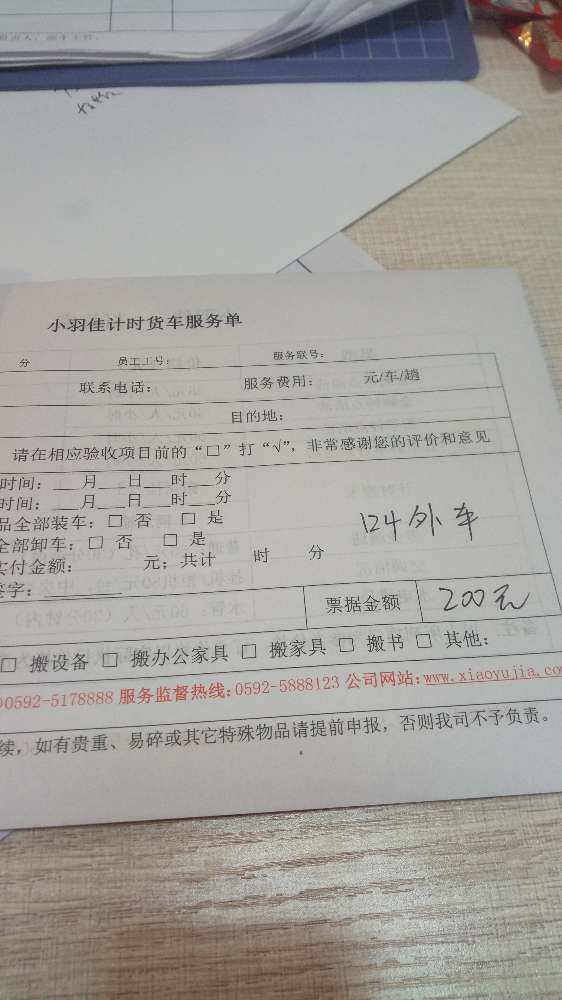 小羽佳计时货车服务单
分 员工工号: 服务联号:
联系电话: 服务费用: 元/车/趟
目的地:
请在相应验收项目前的“□”打“√”，非常感谢您的评价和意见
时间: 月 日 时 分
时间: 月 日 时 分
品全部装车: □ 否 □ 是
全部卸车: □ 否 □ 是
124外车
实付金额: 元; 共计 时 分
签字:
票据金额 200元
□ 搬设备 □ 搬办公家具 □ 搬家具 □ 搬书 □ 其他:
0592-5178888 服务监督热线:0592-5888123 公司网站:www.xiaoyujia.com
续，如有贵重、易碎或其它特殊物品请提前申报，否则我司不予负责。